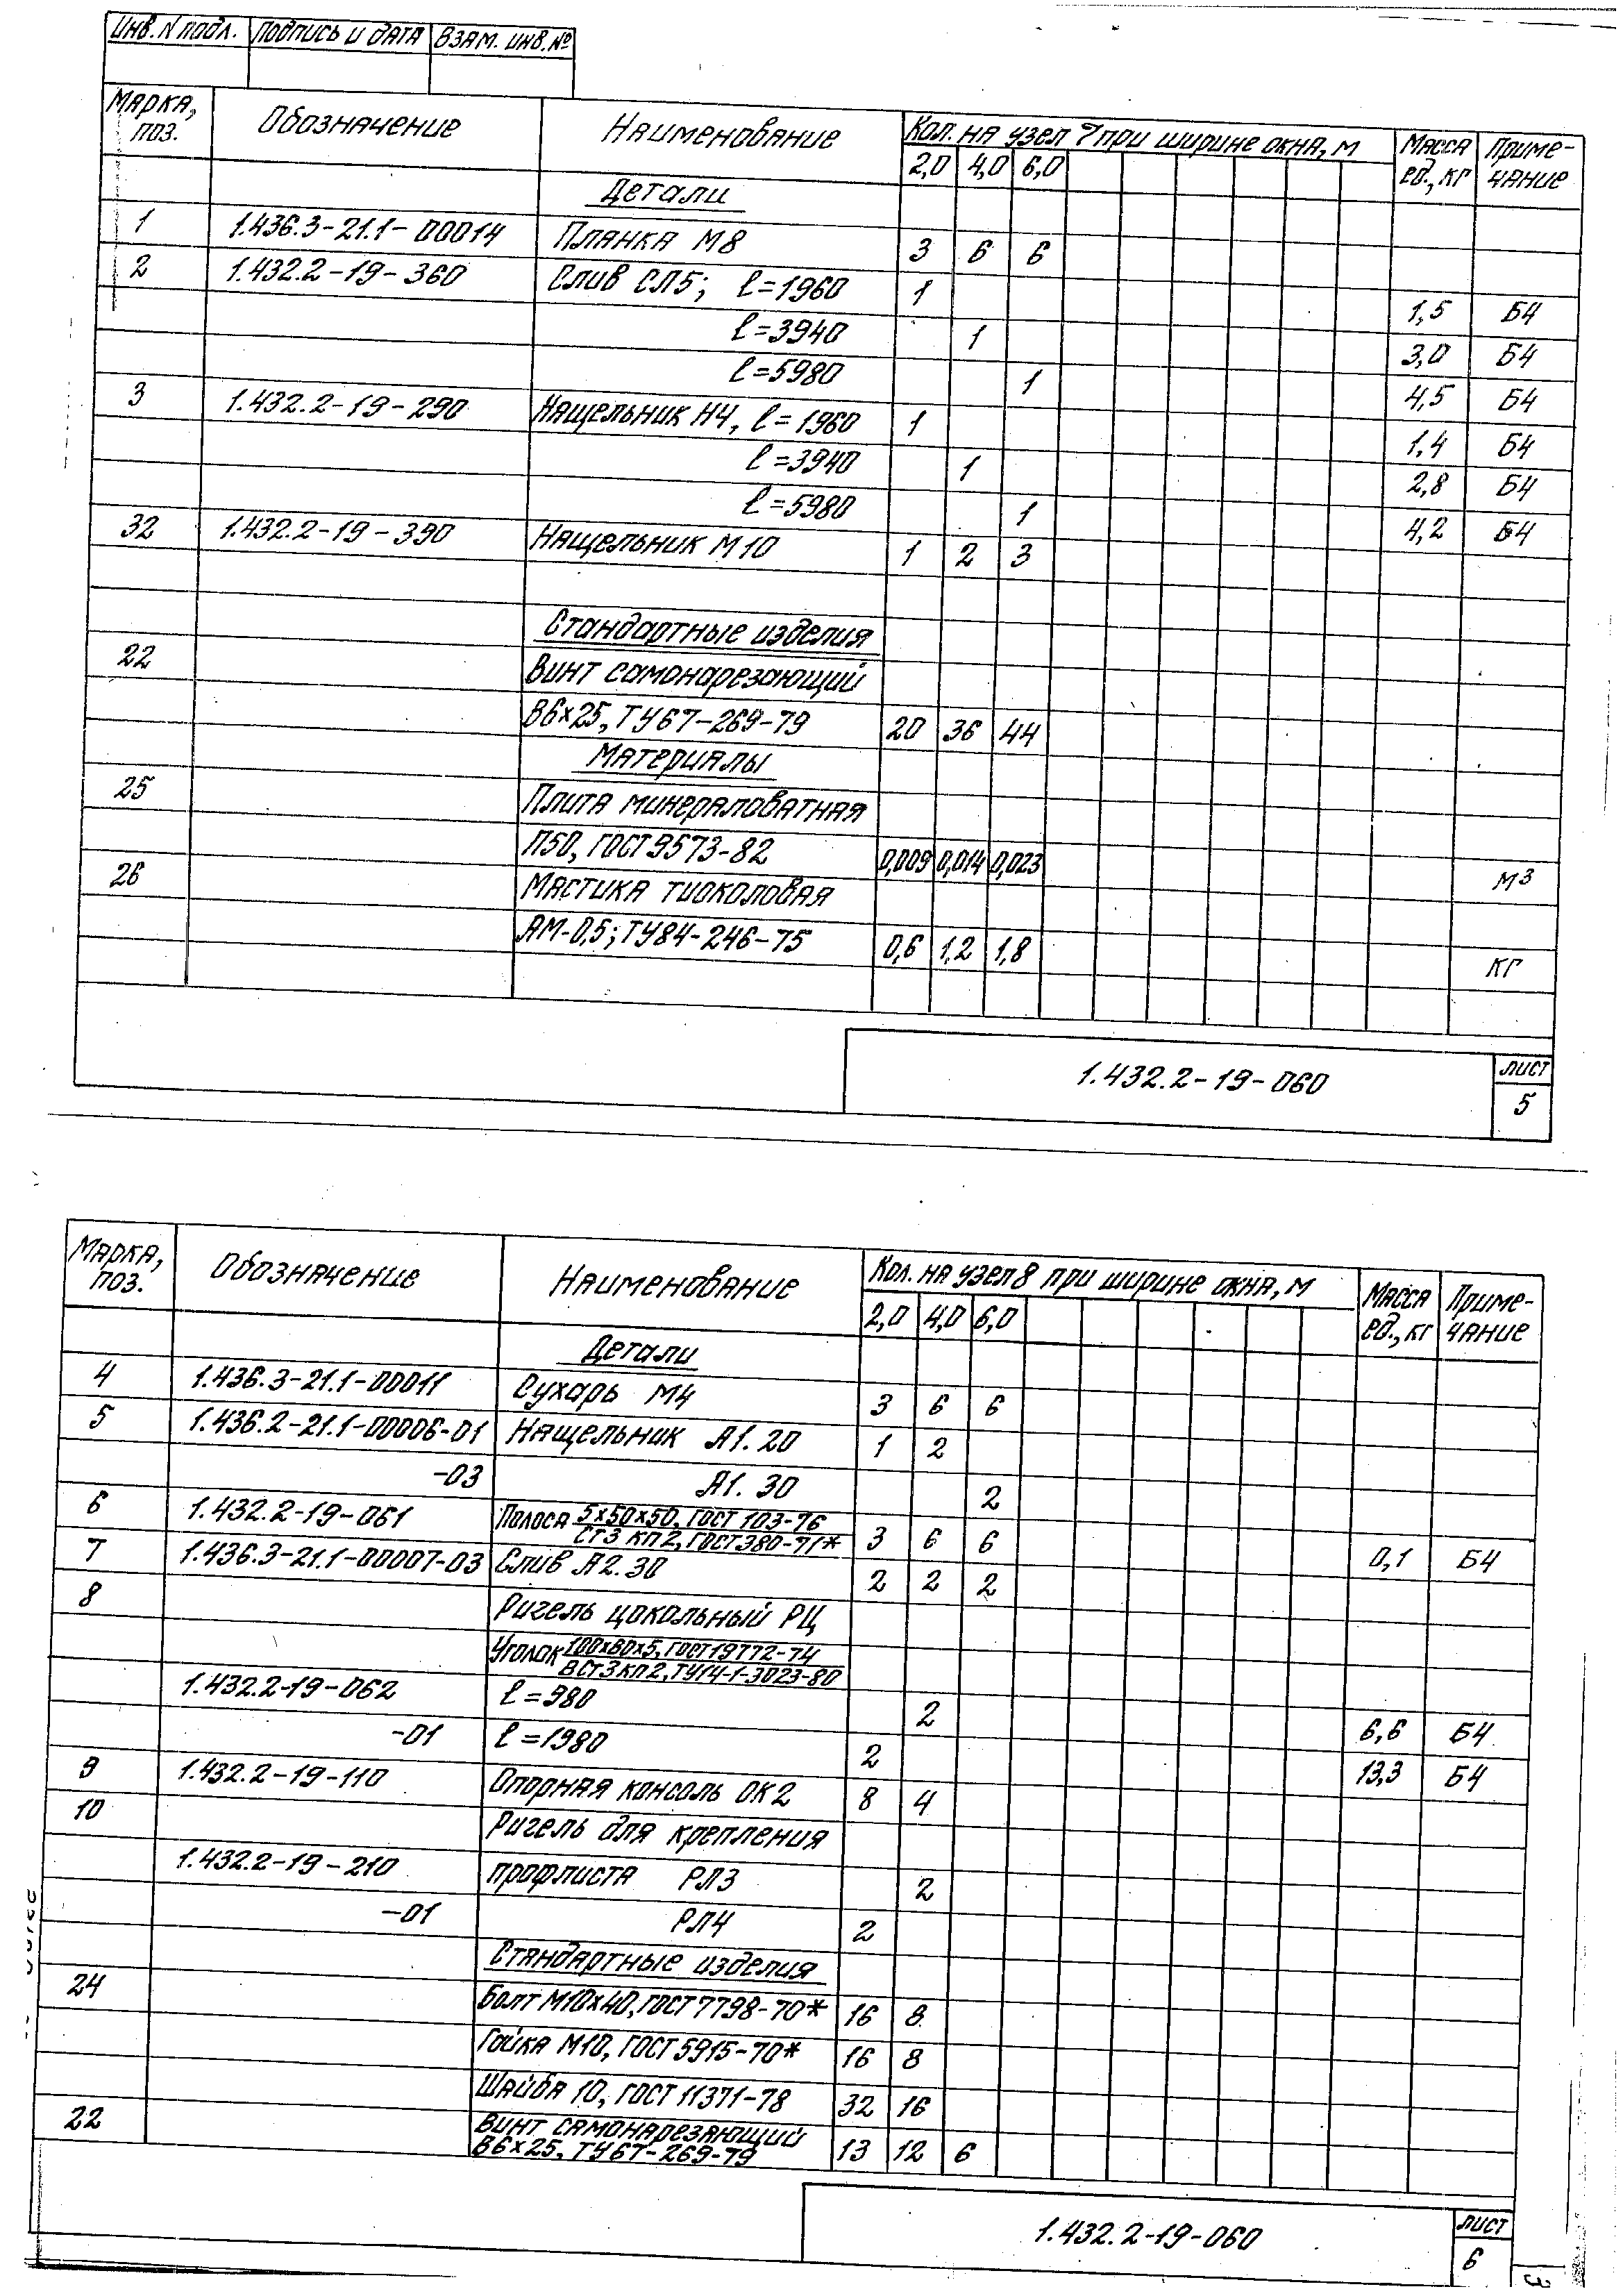 Инв. N подл. Подпись и дата Взам. инв. №
Марка, поз. Обозначение Наименование Кол. на узел 7 при ширине окна, м Масса ед., кг Примечание
2,0 4,0 6,0
Детали
1 1.436.3-21.1-00014 Планка М8 3 6 6
2 1.432.2-19-360 Слив СЛ5; ℓ=1960 1 1,5 Б4
ℓ=3940 1 3,0 Б4
ℓ=5980 1 4,5 Б4
3 1.432.2-19-290 Нащельник Н4, ℓ=1960 1 1,4 Б4
ℓ=3940 1 2,8 Б4
ℓ=5980 1 4,2 Б4
32 1.432.2-19-390 Нащельник М10 1 2 3
Стандартные изделия
22 Винт самонарезающий
В6×25, ТУ67-269-79 20 36 44
Материалы
25 Плита минераловатная
П50, ГОСТ 9573-82 0,009 0,014 0,023 м³
26 Мастика тиоколовая
АМ-0,5; ТУ84-246-75 0,6 1,2 1,8 кг
1.432.2-19-060 Лист
5
Марка, поз. Обозначение Наименование Кол. на узел 8 при ширине окна, м Масса ед., кг Примечание
2,0 4,0 6,0
Детали
4 1.436.3-21.1-00011 Сухарь М4 3 6 6
5 1.436.2-21.1-00006-01 Нащельник А1.20 1 2
-03 А1.30 2
6 1.432.2-19-061 Полоса 5×50×50, ГОСТ 103-76 3 6 6 0,1 Б4
Ст3 кп2, ГОСТ 380-71*
7 1.436.3-21.1-00007-03 Слив А2.30 2 2 2
8 Ригель цокольный РЦ
Уголок 100×60×5, ГОСТ 19772-74
ВСт3кп2, ТУ14-1-3023-80
1.432.2-19-062 ℓ=980 2 6,6 Б4
-01 ℓ=1980 2 13,3 Б4
9 1.432.2-19-110 Опорная консоль ОК2 8 4
10 Ригель для крепления
1.432.2-19-210 профлиста РЛ3 2
-01 РЛ4 2
Стандартные изделия
24 Болт М10×40, ГОСТ 7798-70* 16 8
Гайка М10, ГОСТ 5915-70* 16 8
Шайба 10, ГОСТ 11371-78 32 16
22 Винт самонарезающий
В6×25, ТУ67-269-79 13 12 6
1.432.2-19-060 Лист
6